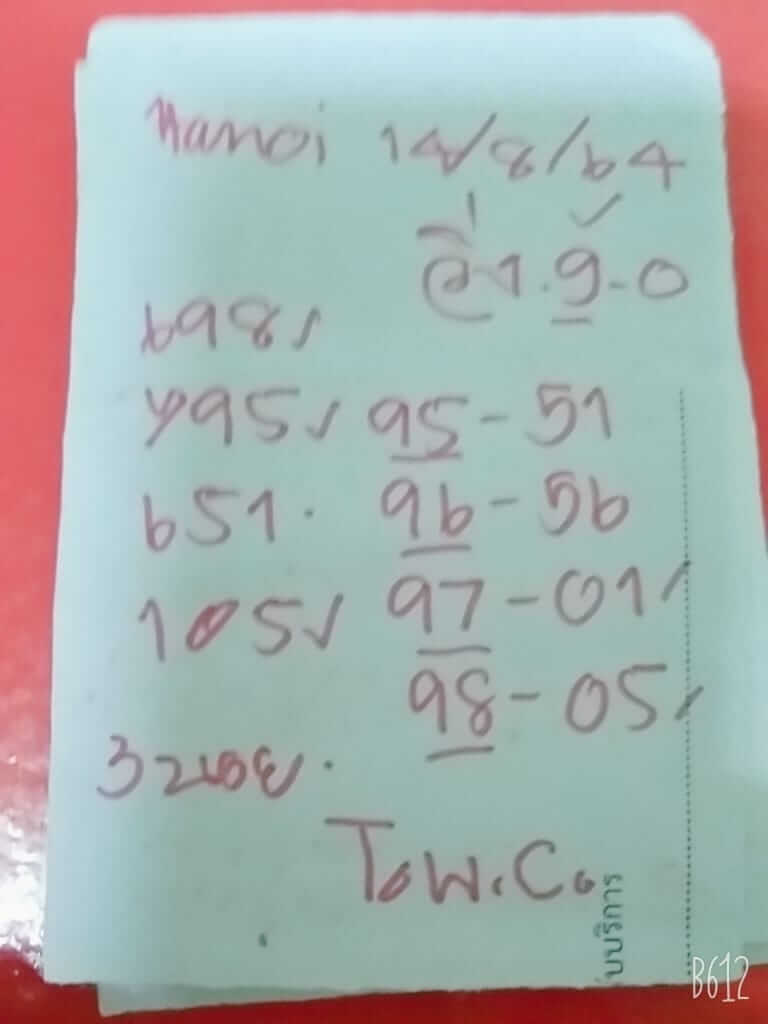 Hanoi 14/8/64
วิ่ 1.9-0
698✓
795✓ 95-51
651. 96-56
105✓ 97-01
98-05
3 ฮานอย.
To W.C.
บบริการ
B612